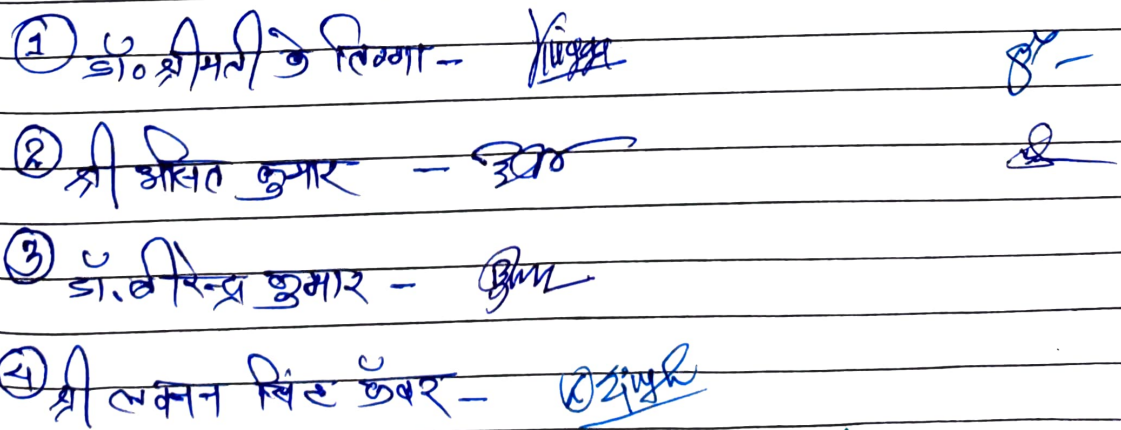 ① डॉ० श्रीमती के तिग्गा -
② श्री असित कुमार -
③ डॉ. बीरेन्द्र कुमार -
④ श्री लखन सिंह कँवर - Singh